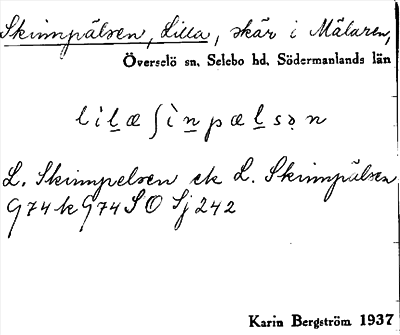 Skinnpälsen, Lilla, skär i Mälaren,
Överselö sn, Selebo hd, Södermanlands län
lìl̲æʃìn̲pæl̲sə̣n
L. Skinnpelsen ek L. Skinnpälsen
G74k G74SO Sj242
Karin Bergström 1937